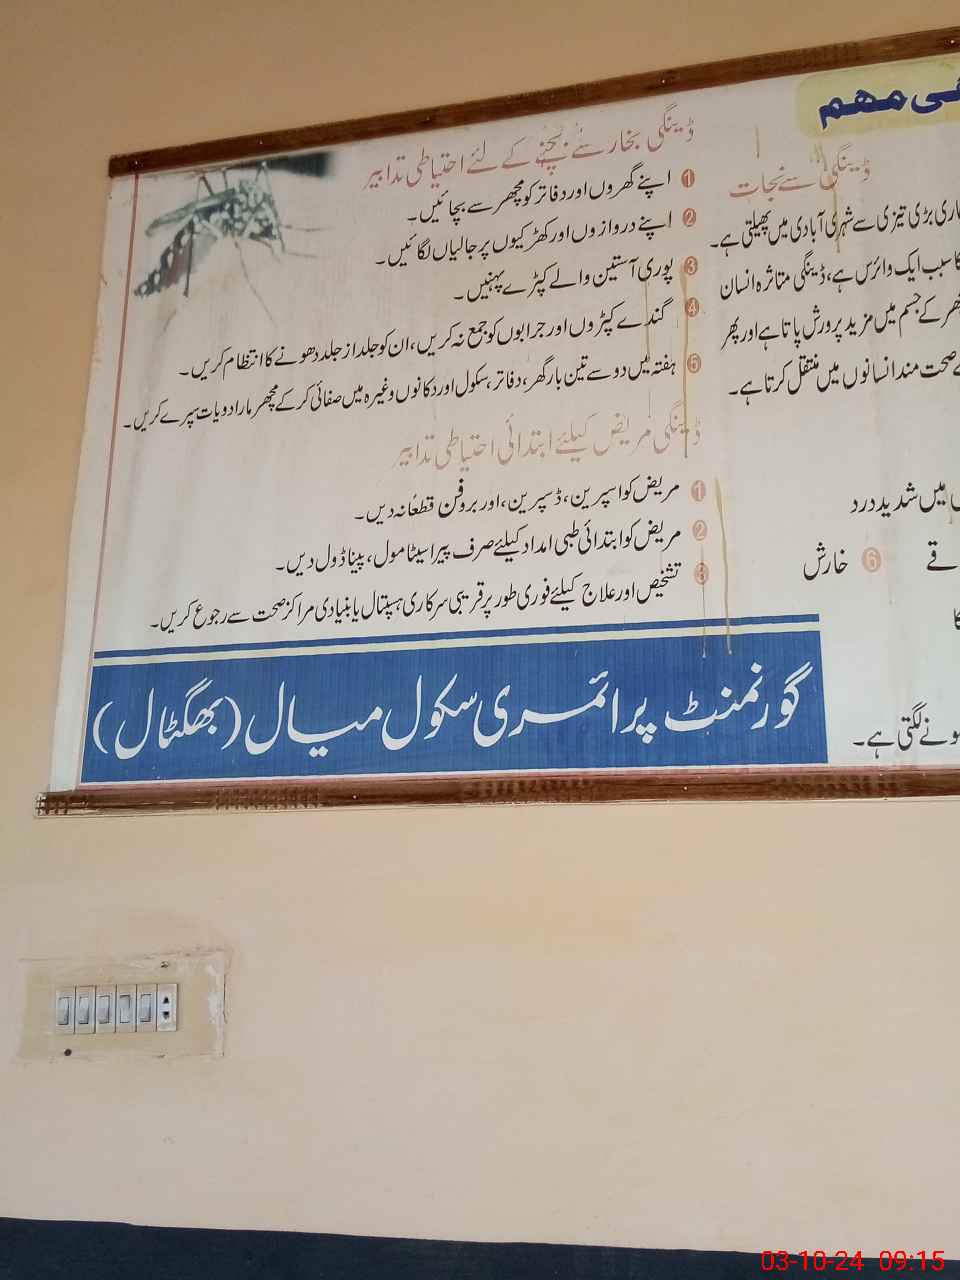 مہم
ڈینگی سے نجات
بڑی تیزی سے شہری آبادی میں پھیلتی ہے۔
سبب ایک وائرس ہے، ڈینگی متاثرہ انسان
کے جسم میں مزید پرورش پاتا ہے اور پھر
صحت مند انسانوں میں منتقل کرتا ہے۔
میں شدید درد
قے 6 خارش
ہونے لگتی ہے۔
ڈینگی بخار سے بچنے کے لئے احتیاطی تدابیر
1 اپنے گھروں اور دفاتر کو مچھر سے بچائیں۔
2 اپنے دروازوں اور کھڑکیوں پر جالیاں لگائیں۔
3 پوری آستین والے کپڑے پہنیں۔
4 گندے کپڑوں اور جرابوں کو جمع نہ کریں، ان کو جلد از جلد دھونے کا انتظام کریں۔
5 ہفتہ میں دو سے تین بار گھر، دفاتر، سکول اور دکانوں وغیرہ میں صفائی کر کے مچھر مار ادویات سپرے کریں۔
ڈینگی مریض کیلئے ابتدائی احتیاطی تدابیر
1 مریض کو اسپرین، ڈسپرین، اور بروفن قطعاً نہ دیں۔
2 مریض کو ابتدائی طبی امداد کیلئے صرف پیراسیٹامول، پیناڈول دیں۔
3 تشخیص اور علاج کیلئے فوری طور پر قریبی سرکاری ہسپتال یا بنیادی مراکز صحت سے رجوع کریں۔
گورنمنٹ پرائمری سکول میال (بھگٹال)
03-10-24 09:15